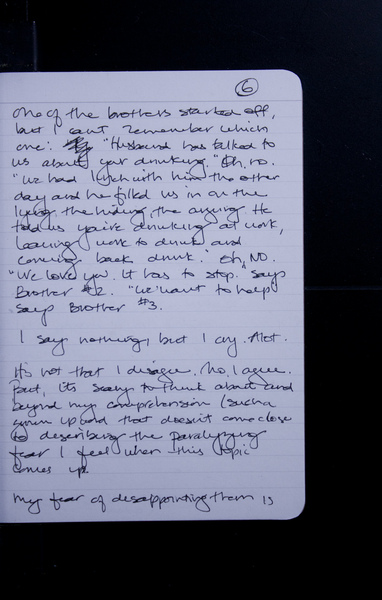 6
One of the brothers started off,
but I can't remember which
one: "Husband has talked to
us about your drinking." Oh, no.
"We had lunch with him the other
day and he filled us in on the
lying, the hiding, the arguing. He
told us you're drinking at work,
leaving work to drink and
coming back drunk." Oh, NO.
"We love you. It has to stop." Says
Brother #2. "We want to help"
says Brother #3.
I say nothing, but I cry. Alot.
It's not that I disagree. No, I agree.
But, it's scary to think about and
beyond my comprehension (such a
grown up word that doesn't come close
to describing the paralyzing
fear I feel when this topic
comes up.
My fear of disappointing them is